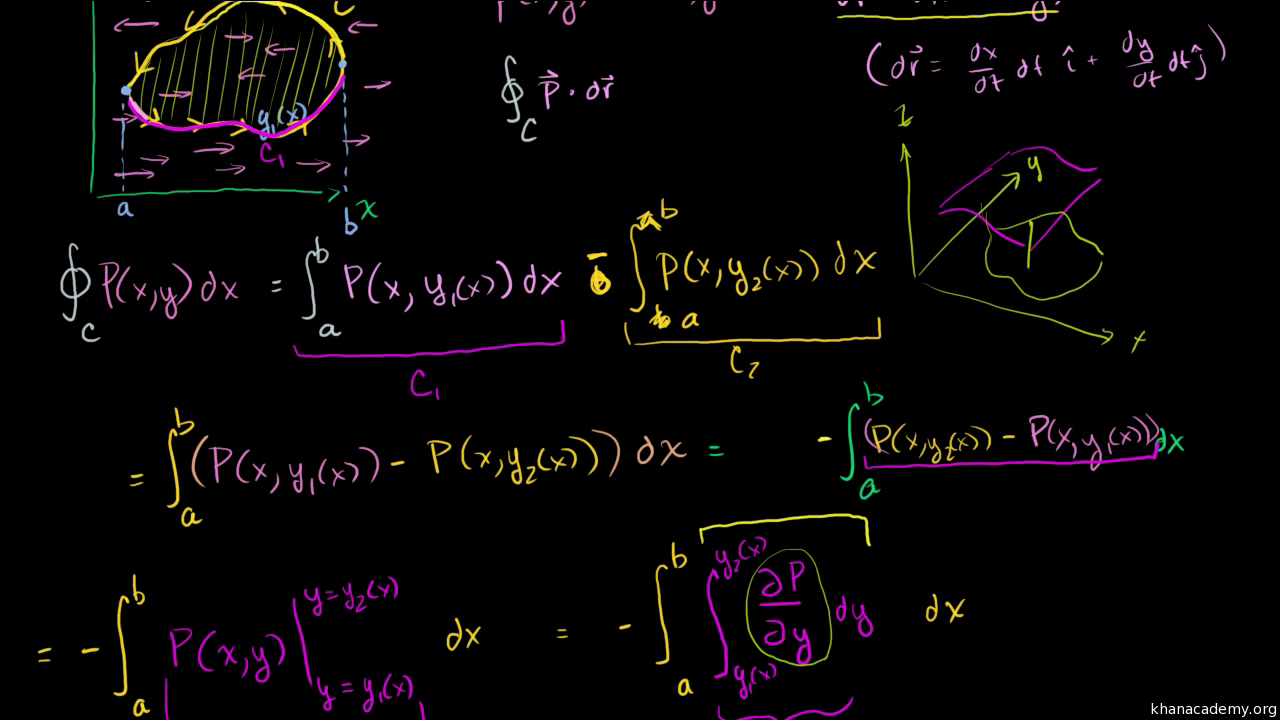 y₁(x)
C₁
a b x
∮_C P⃗ · dr⃗
(dr⃗ = dx/dt dt î + dy/dt dt ĵ)
z
y
x
∮_C P(x,y) dx = ∫_a^b P(x, y₁(x)) dx - ∫_a^b P(x, y₂(x)) dx
C₁ C₂
= ∫_a^b (P(x, y₁(x)) - P(x, y₂(x))) dx = - ∫_a^b (P(x, y₂(x)) - P(x, y₁(x))) dx
= - ∫_a^b P(x,y) |_{y = y₁(x)}^{y = y₂(x)} dx = - ∫_a^b ∫_{y₁(x)}^{y₂(x)} ∂P/∂y dy dx
khanacademy.org